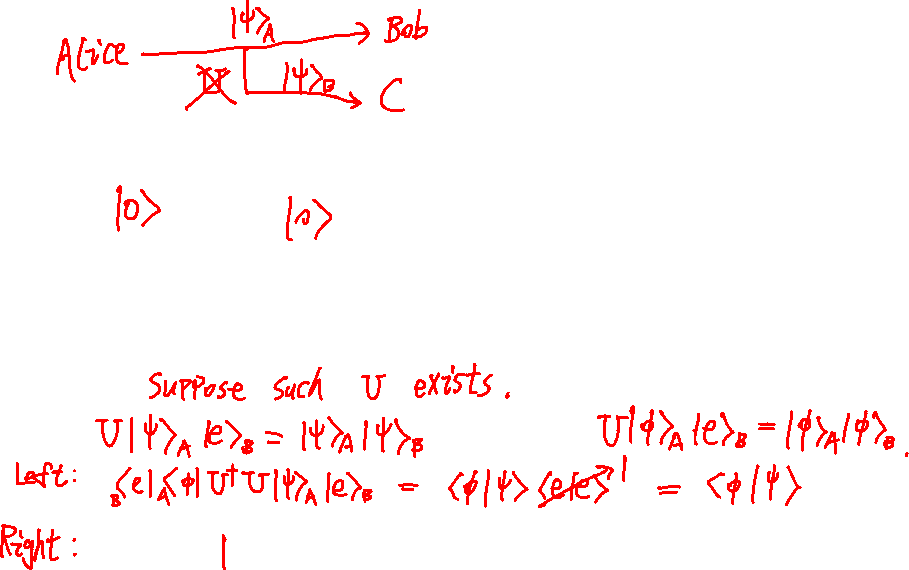 |ψ⟩_A
Alice → Bob
U |ψ⟩_B → C
|0⟩ |0⟩
Suppose such U exists.
U|ψ⟩_A|e⟩_B = |ψ⟩_A|ψ⟩_B U|ϕ⟩_A|e⟩_B = |ϕ⟩_A|ϕ⟩_B.
Left: _B⟨e|_A⟨ϕ|U†U|ψ⟩_A|e⟩_B = ⟨ϕ|ψ⟩⟨e|e⟩ 1 = ⟨ϕ|ψ⟩
Right: |